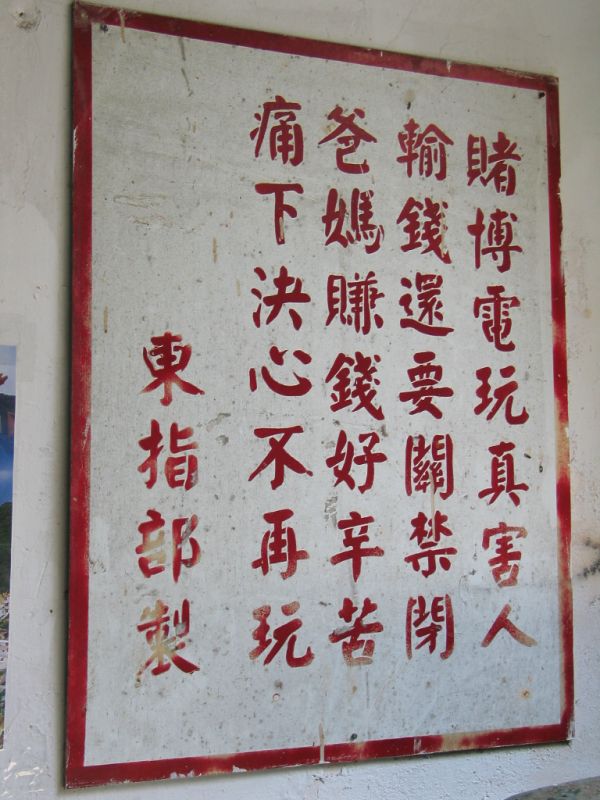 賭博電玩真害人
輸錢還要關禁閉
爸媽賺錢好辛苦
痛下決心不再玩
東指部製